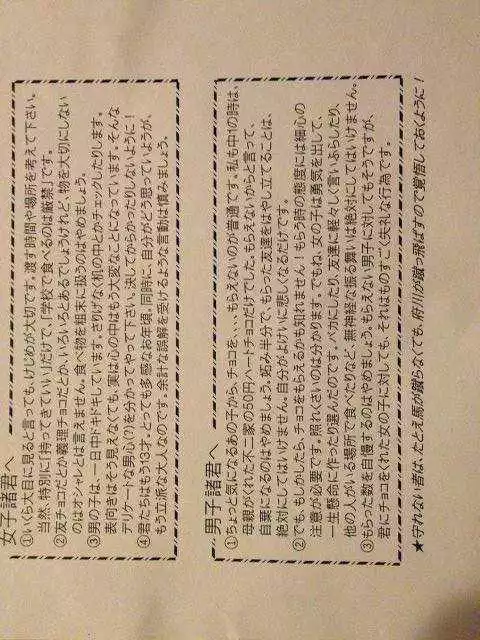 女子諸君へ
①いくら大目に見ると言っても、けじめが大切です。渡す時間や場所を考えて下さい。
当然、特別に「持ってきていい」だけで、「学校で食べるのは厳禁」です。
②友チョコだとか義理チョコだとか、いろいろとあるでしょうけれど、物を大切にしない
のはオシャレとは言えません。食べ物を粗末に扱うのはやめましょう。
③男の子は、一日中ドキドキしています。さりげなく机の中とかチェックしたりします。
表向きはそう見えなくても、実は心の中はもう大変なことになっています。そんな
デリケートな男心(?)を分かってやって下さい。決してからかったりしないように!
④君たちはもう13才。とっても多感なお年頃。同時に、自分がどう思っていようが、
もう立派な大人なのです。余計な誤解を受けるような言動は慎みましょう。
男子諸君へ
①ちょっと気になるあの子から、チョコを、、、もらえないのが普通です。私も中1の時は、
母親がくれた不二家の50円ハートチョコだけでした。もらえないからと言って、
自棄になるのはやめましょう。妬み半分で、もらった友達をはやし立てることは、
絶対にしてはいけません。自分がよけいに悲しくなるだけです。
②でも、もしかしたら、チョコをもらえるかも知れません!もらう時の態度には細心の
注意が必要です。照れくさいのは分かります。でもね、女の子は勇気を出して、
一生懸命に作ったり選んだのです。バカにしたり、友達に軽々しく言いふらしたり、
他の人がいる場所で食べたりなど、無神経な振る舞いは絶対にしてはいけません。
③もらった数を自慢するのはやめましょう。もらえない男子に対してもそうですが、
君にチョコをくれた女の子に対しても、それはものすごく失礼な行為です。
★守れない者は、たとえ馬が蹴らなくても、府川が蹴っ飛ばすので覚悟しておくように!